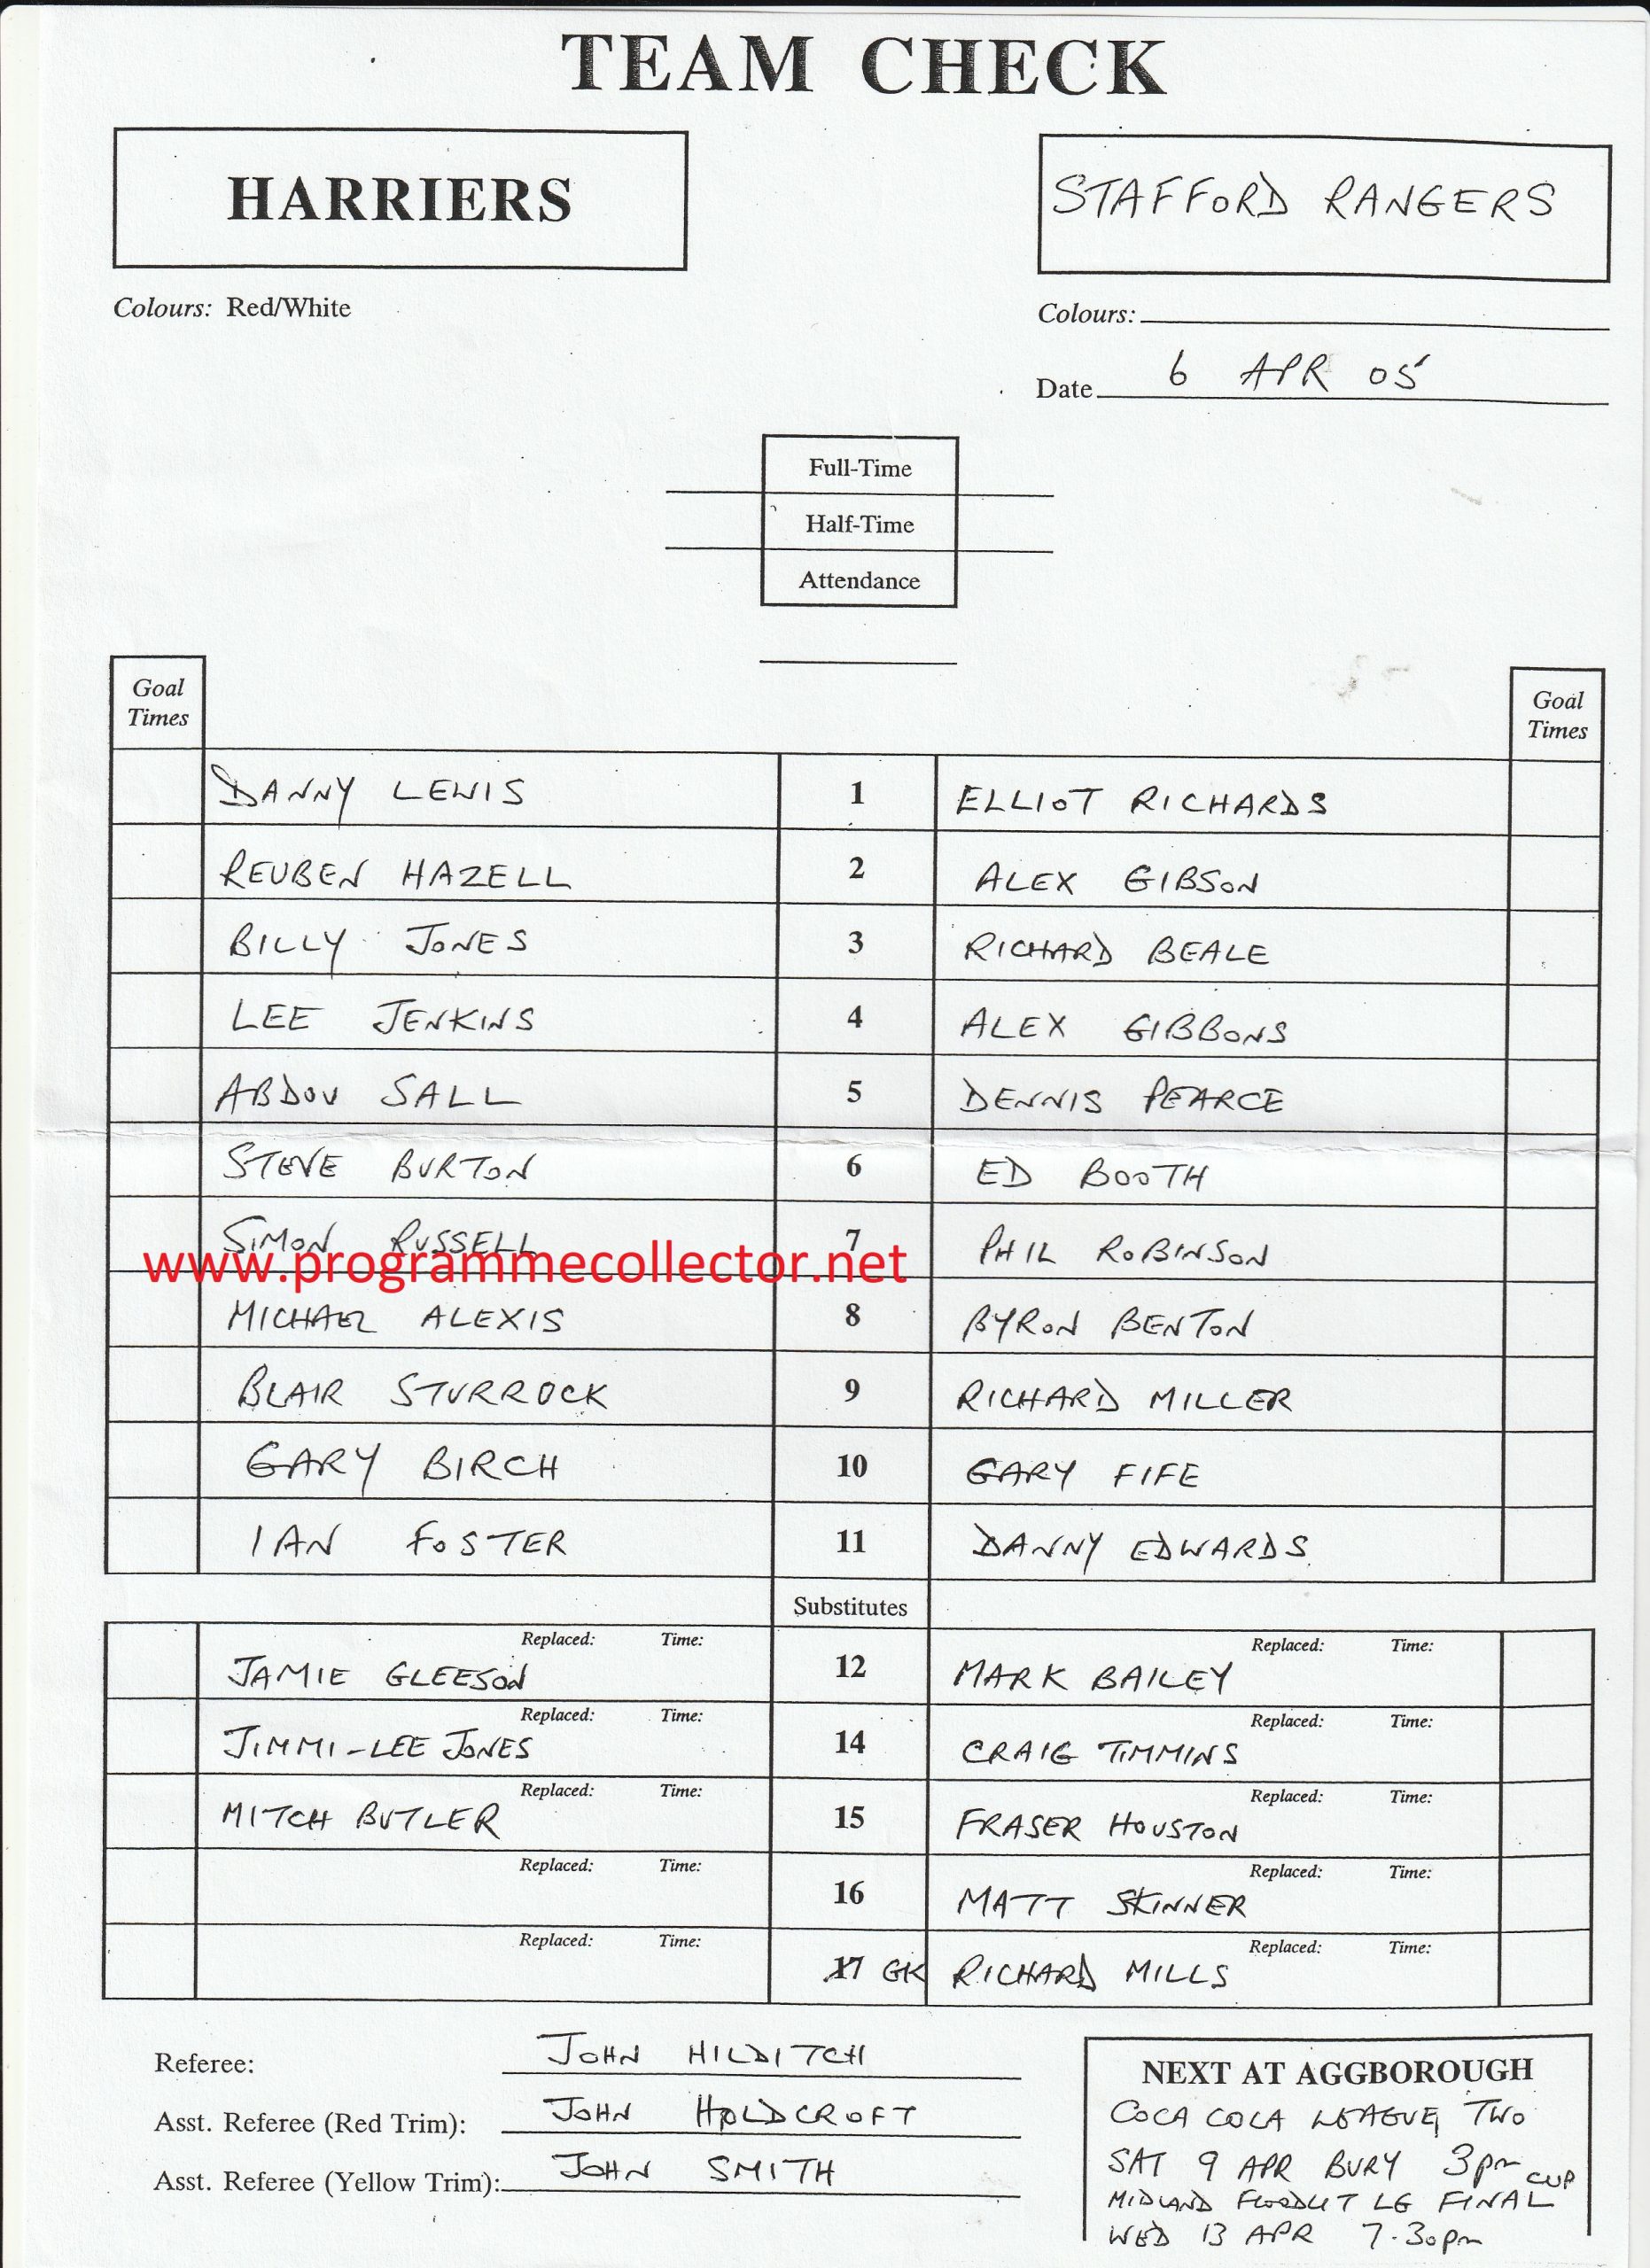 TEAM CHECK
HARRIERS
STAFFORD RANGERS
Colours: Red/White
Colours:
Date 6 APR 05
Full-Time
Half-Time
Attendance
Goal Times
Goal Times
DANNY LEWIS 1 ELLIOT RICHARDS
REUBEN HAZELL 2 ALEX GIBSON
BILLY JONES 3 RICHARD BEALE
LEE JENKINS 4 ALEX GIBBONS
ABDOU SALL 5 DENNIS PEARCE
STEVE BURTON 6 ED BOOTH
SIMON RUSSELL 7 PHIL ROBINSON
www.programmecollector.net
MICHAEL ALEXIS 8 BYRON BENTON
BLAIR STURROCK 9 RICHARD MILLER
GARY BIRCH 10 GARY FIFE
IAN FOSTER 11 DANNY EDWARDS
Substitutes
Replaced: Time: Replaced: Time:
JAMIE GLEESON 12 MARK BAILEY
Replaced: Time: Replaced: Time:
JIMMI-LEE JONES 14 CRAIG TIMMINS
Replaced: Time: Replaced: Time:
MITCH BUTLER 15 FRASER HOUSTON
Replaced: Time: Replaced: Time:
16 MATT SKINNER
Replaced: Time: Replaced: Time:
17 GK RICHARD MILLS
Referee: JOHN HILDITCH
Asst. Referee (Red Trim): JOHN HOLDCROFT
Asst. Referee (Yellow Trim): JOHN SMITH
NEXT AT AGGBOROUGH
COCA COLA LEAGUE TWO
SAT 9 APR BURY 3pm
MIDLAND FLOODLIT LG CUP FINAL
WED 13 APR 7.30pm